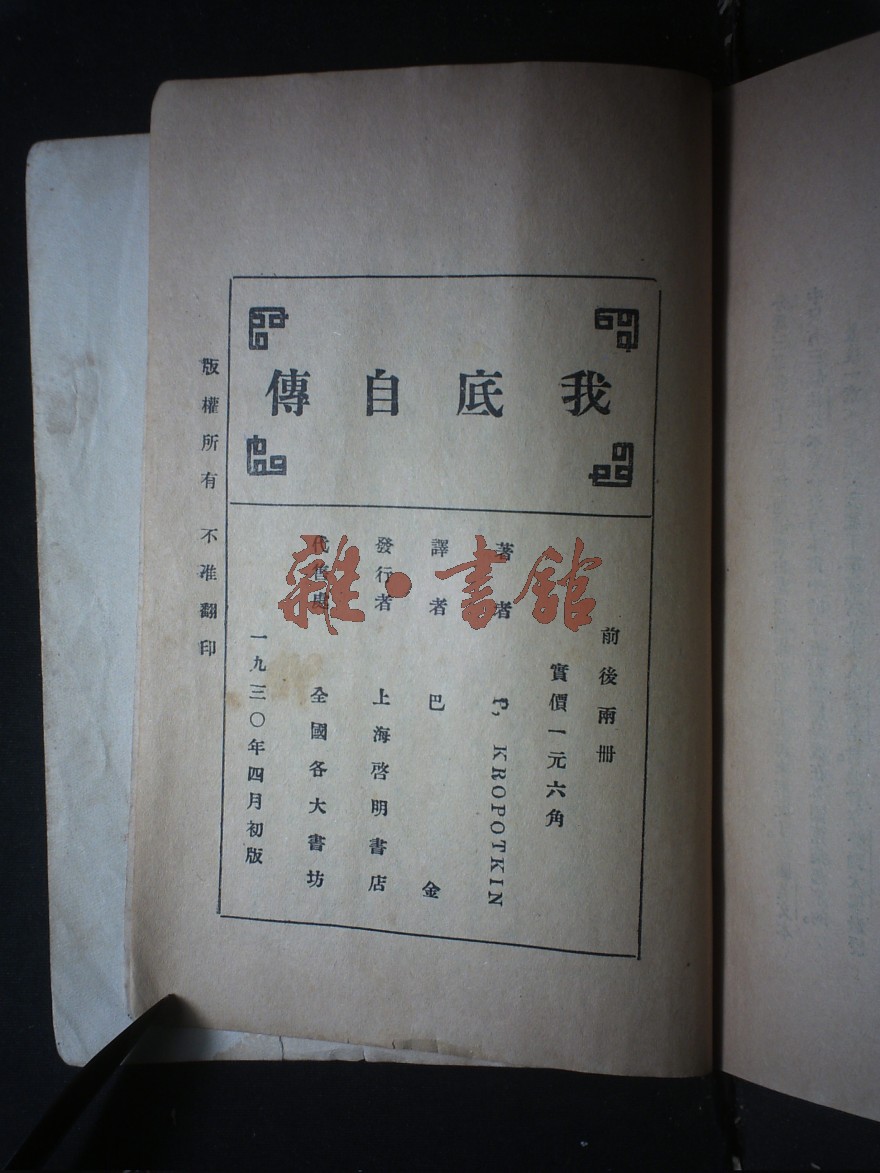 我底自傳
前後兩冊
實價一元六角
著者 P. KROPOTKIN
譯者 巴金
發行者 上海啓明書店
代售處 全國各大書坊
一九三〇年四月初版
版權所有 不准翻印
雜·書館